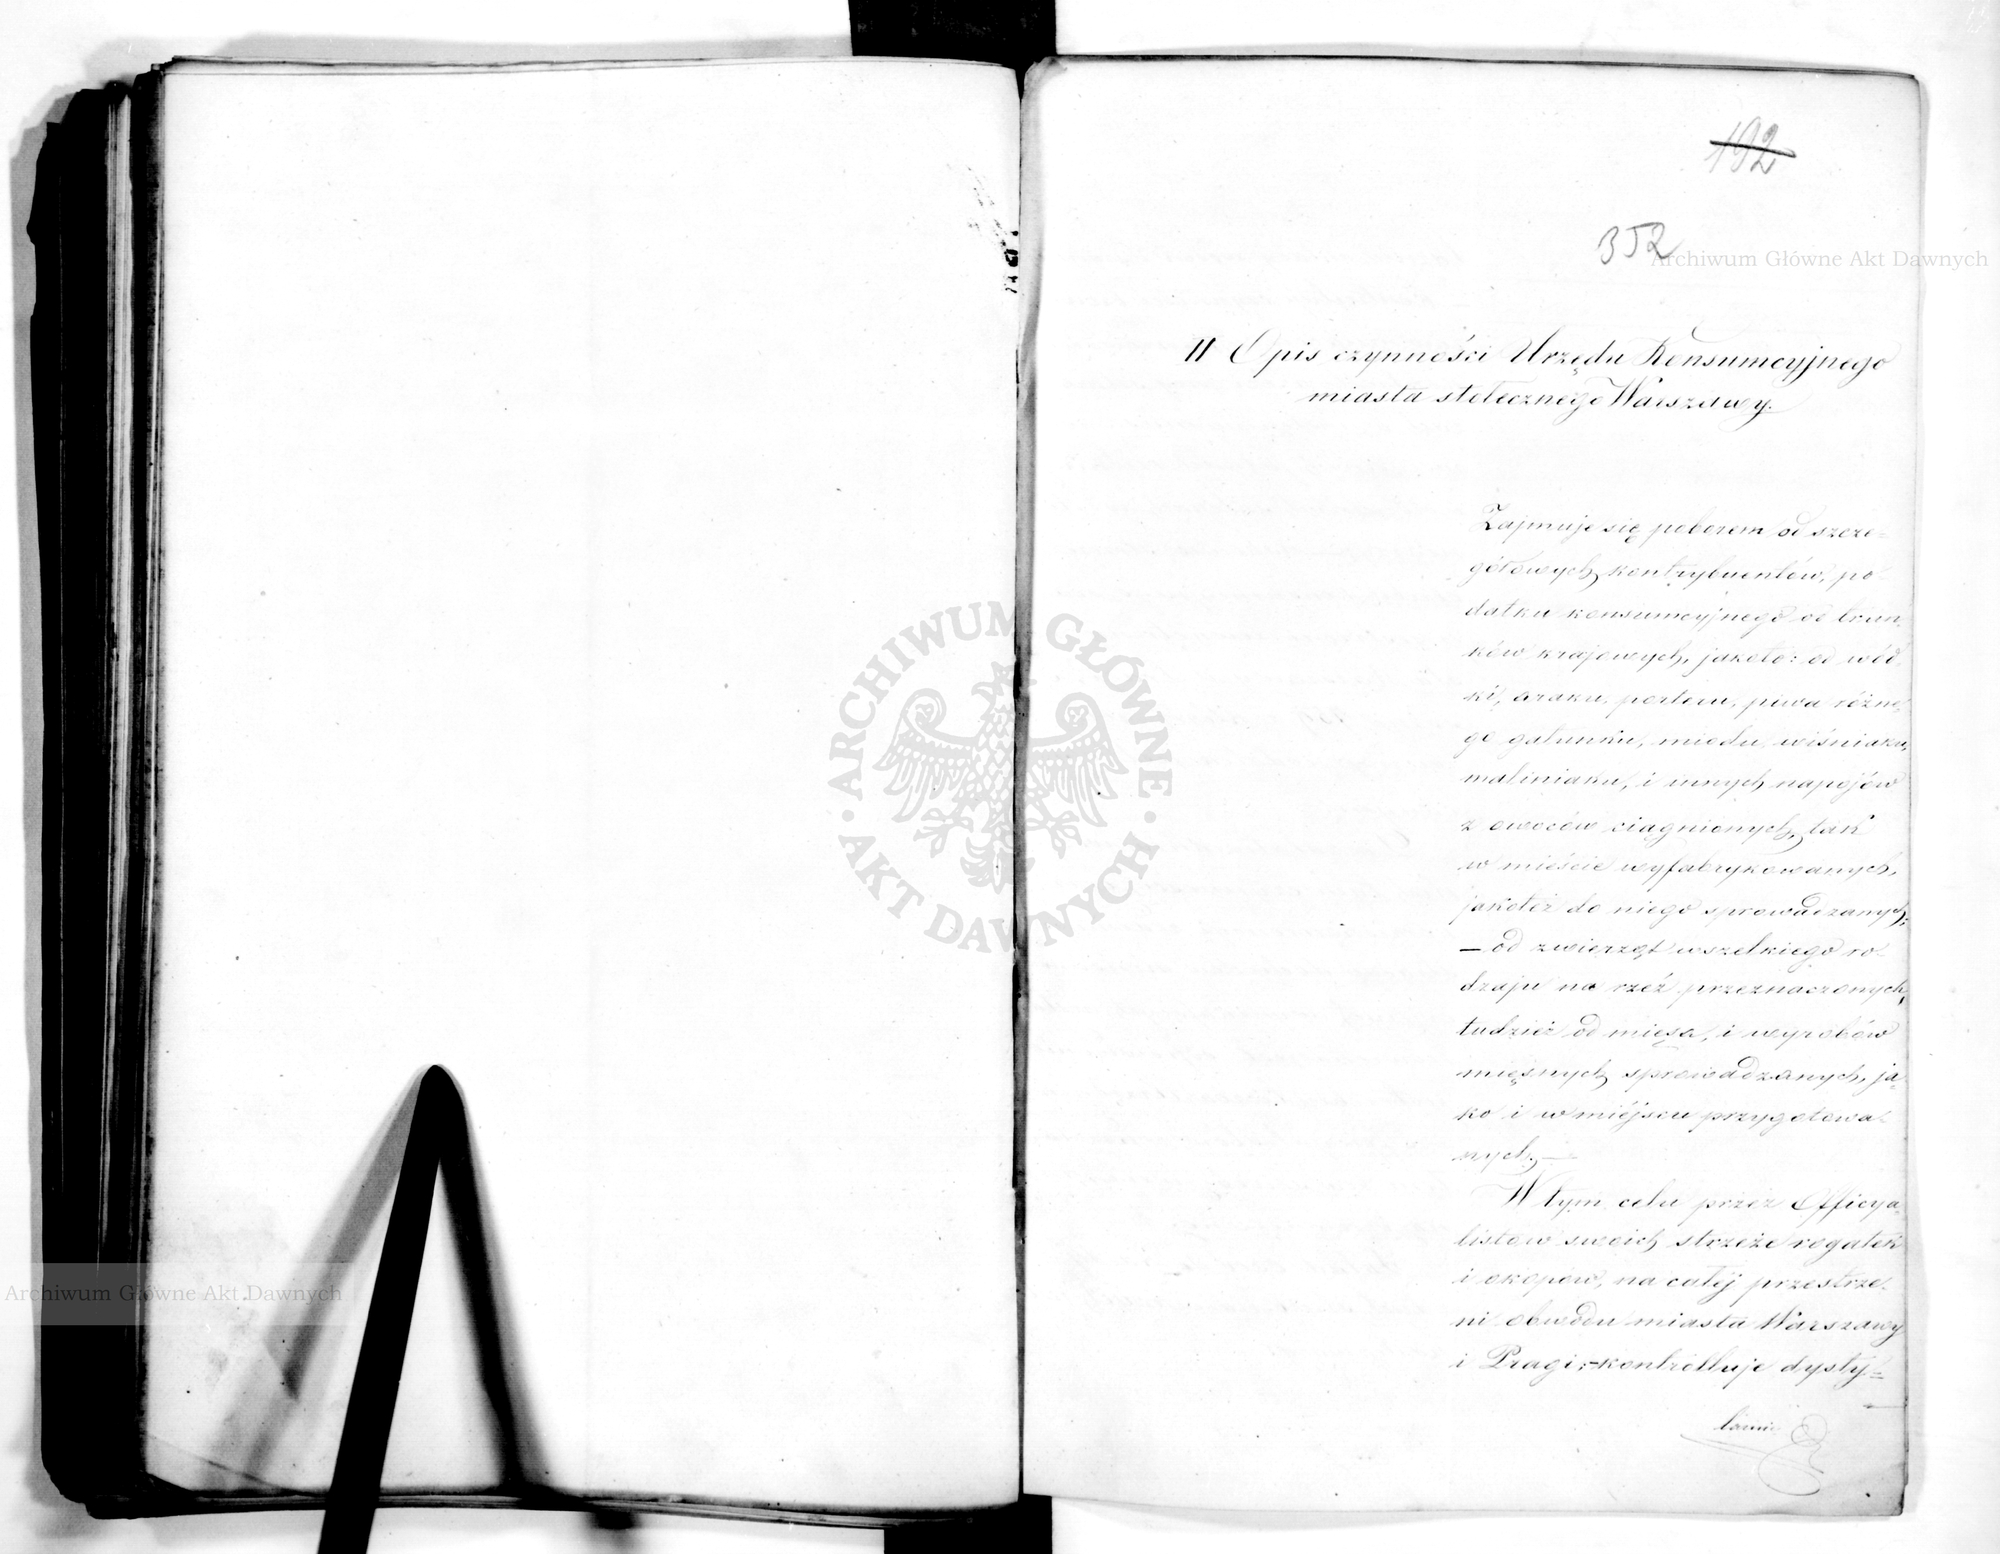 192
352
II Opis czynności Urzędu Konsumcyjnego
miasta stołecznego Warszawy.
Zajmuje się poborem od szcze-
gółowych kontrybuentów, po-
datku konsumcyjnego od trun-
ków krajowych, jakoto: od wód-
ki, araku, porteru, piwa różne-
go gatunku, miodu, wiśniaku,
maliniaku, i innych napojów
z owoców ciągnionych, tak
w mieście wyfabrykowanych,
jakoteż do niego sprowadzanych;
— od zwierząt wszelkiego ro-
dzaju na rzeź przeznaczonych,
tudzież od mięsa, i wyrobów
mięsnych sprowadzanych, ja-
ko i w miéjscu przygotowa-
nych. —
W tym celu przez Officya-
listów swoich strzeże rogatek
i okopów, na całéj przestrze-
ni obwodu miasta Warszawy
i Pragi; – kontrolluje dysty-
Archiwum Główne Akt Dawnych
ARCHIWUM GŁÓWNE AKT DAWNYCH
Archiwum Główne Akt Dawnych